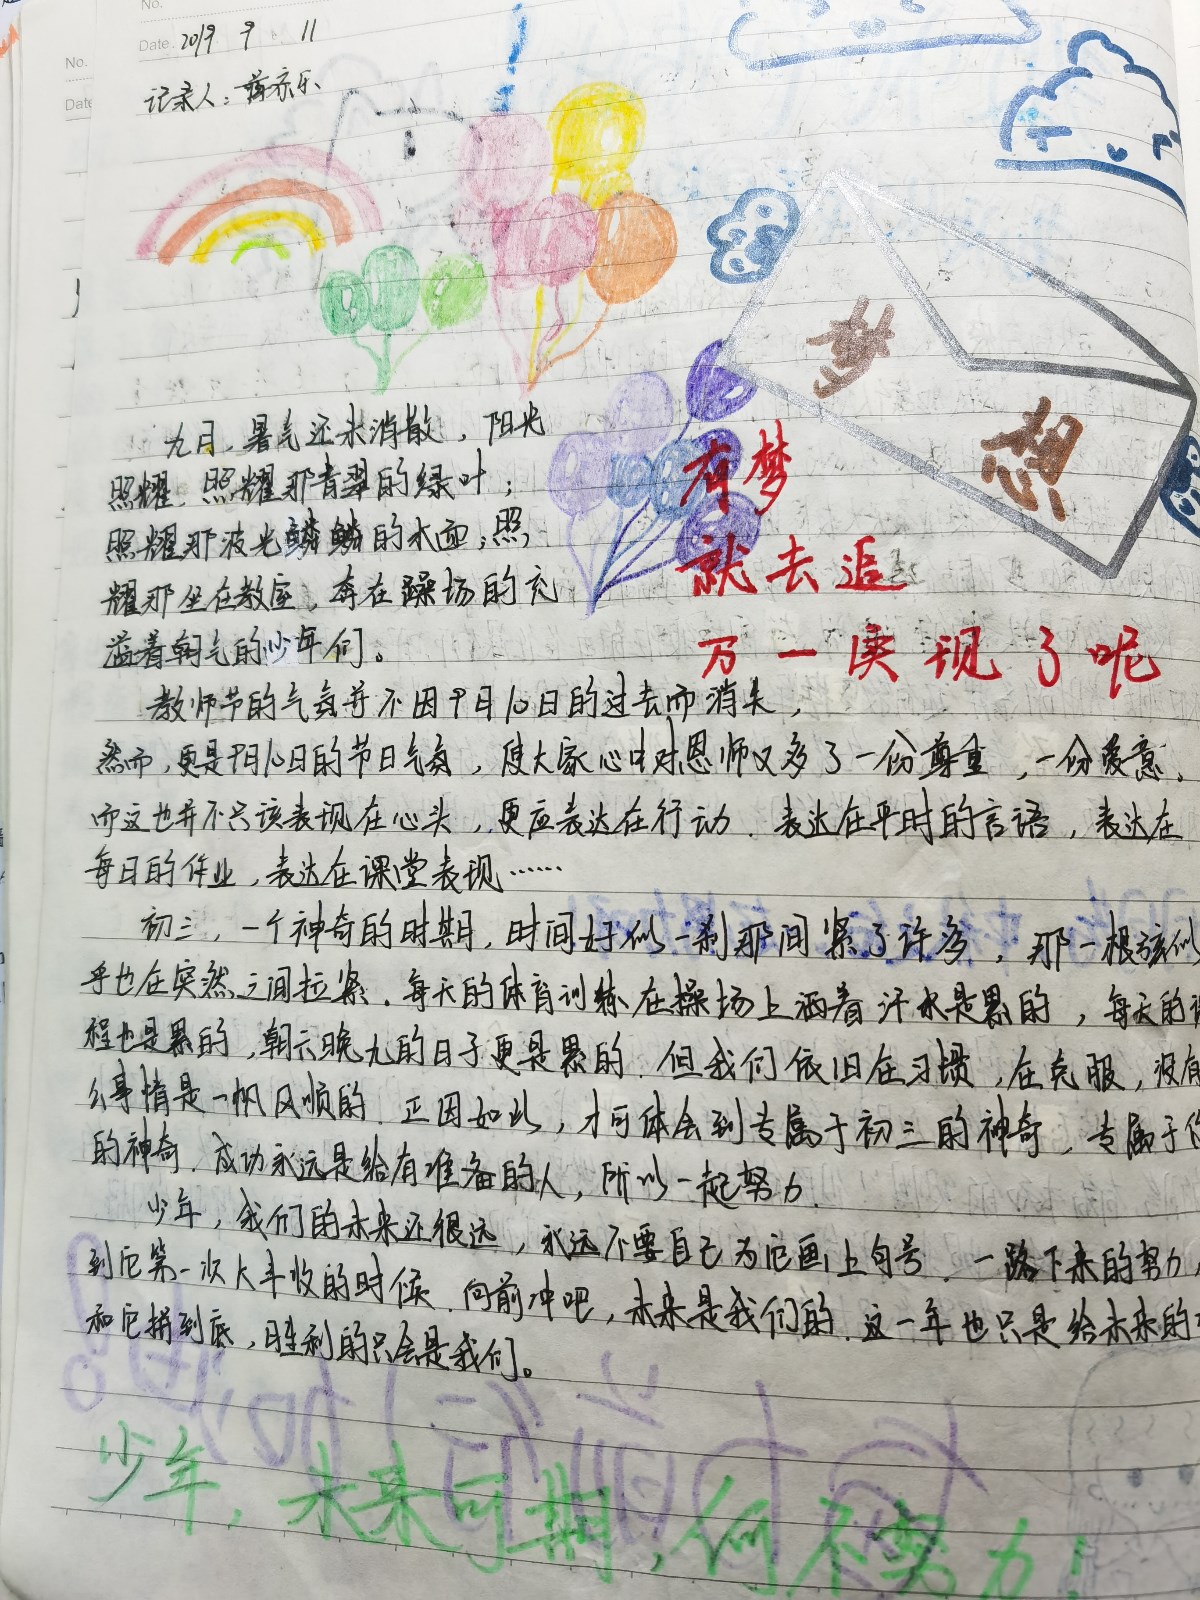 No.
Date. 2019 9 11
No.
Date
记录人：蒋亦乐
梦
想
有梦
就去追
万一实现了呢
九月，暑气还未消散，阳光
照耀，照耀那青翠的绿叶；
照耀那波光鳞鳞的水面；照
耀那坐在教室，奔在躁场的充
溢着朝气的少年们。
教师节的气氛并不因9月10日的过去而消失，
然而，更是9月10日的节日气氛，使大家心中对恩师又多了一份尊重，一份爱意。
而这也并不只该表现在心头，更应表达在行动．表达在平时的言语，表达在
每日的作业，表达在课堂表现……
初三，一个神奇的时期，时间好似一刹那间紧了许多，那一根弦似
乎也在突然之间拉紧．每天的体育训练在操场上洒着汗水是累的，每天的课
程也是累的，朝六晚九的日子更是累的．但我们依旧在习惯，在克服，没有
么事情是一帆风顺的．正因如此，才可体会到专属于初三的神奇，专属于
的神奇．成功永远是给有准备的人，所以一起努力．
少年，我们的未来还很远，永远不要自己为它画上句号．一路下来的努力，
到它第一次大丰收的时候．向前冲吧，未来是我们的．这一年也只是给未来的
和它拼到底，胜利的只会是我们。
少年，未来可期，何不努力！